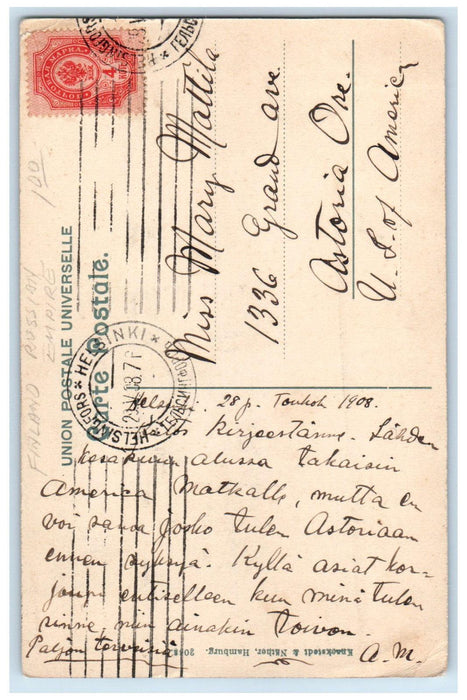 Miss Mary Mattila
1336 Grand ave.
Astoria Ore.
U.S. of America
UNION POSTALE UNIVERSELLE
Carte Postale.
FINLAND RUSSIAN
EMPIRE
1 00
4
HELSINGFORS * HELSINKI * ГЕЛЬСИНГФОРСЪ
28.V.08.7
28 p. Toukok 1908.
kirjeestänne. Lähden
kesäkuun alussa takaisin
America matkalle, mutta en
voi sanoa josko tulen Astoriaan
ennen syksyä. Kyllä asiat kor-
jaupi entiselleen kun minä tulen
sinne, niin ainakin toivon.
Paljon terveisiä A. M.
Knackstedt & Näther, Hamburg.